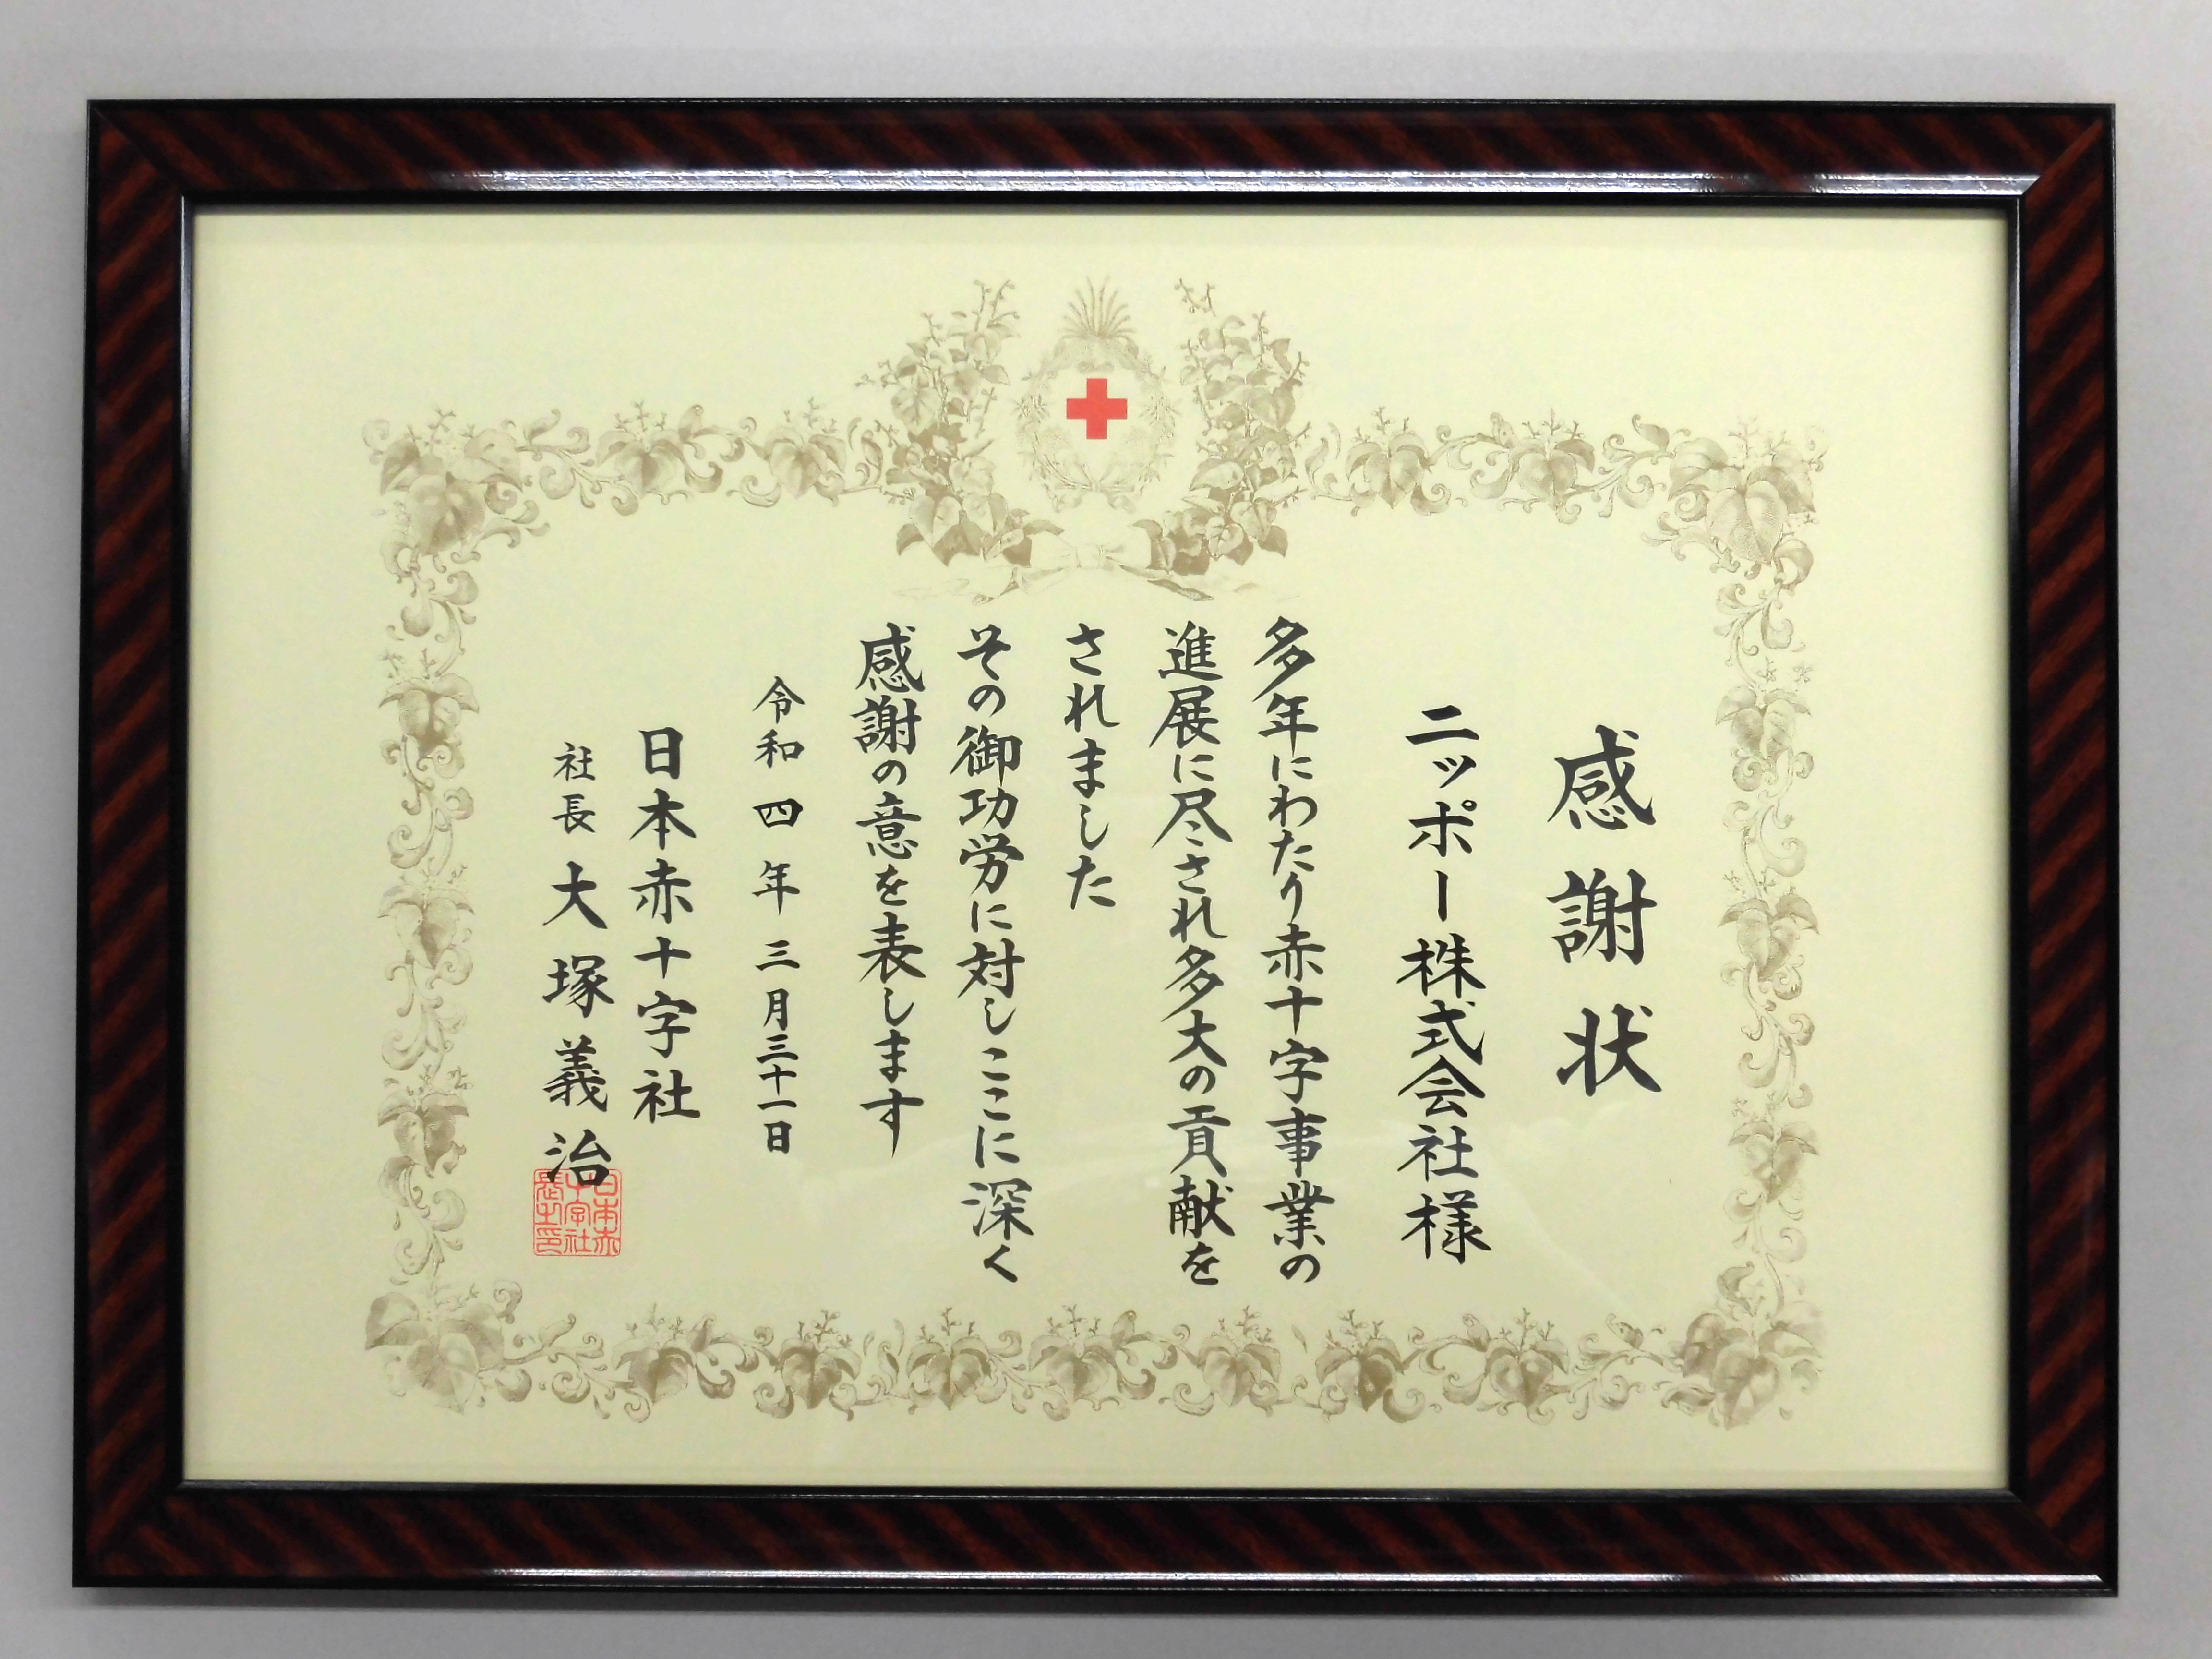 感謝状
ニッポー株式会社様
多年にわたり赤十字事業の
進展に尽され多大の貢献を
されました
その御功労に対しここに深く
感謝の意を表します
令和四年三月三十一日
日本赤十字社
社長 大塚義治
日本赤
十字社
長之印